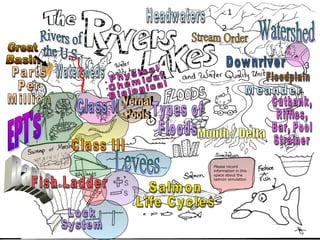 Headwaters
1
Stream Order
Watershed
The
Rivers
Lakes
Rivers of
the U.S.
Great
Basin
Watersheds
Physical
Chemical
Biological
and Water Quality Unit
Downriver
Floodplain
Parts
Per
Million
Meander
Class I
Vernal
Pools
FLOODS
Types of
Floods
Cutbank,
Riffles,
Bar, Pool
Strainer
EPT's
Mouth / Delta
Class III
Levees
Please record
information in this
space about the
salmon simulation
Fish Ladder
+'s
-'s
Salmon
Life Cycles
Salmon
Fish
?
Lock
System